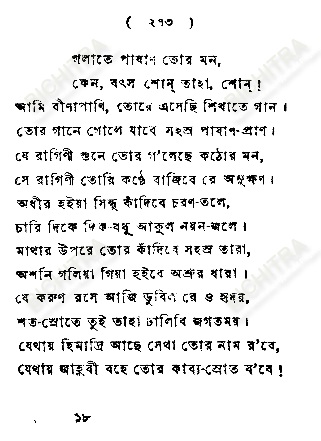 ( ২৭৩ )
গলাতে পাষাণ তোর মন,
কেন, বৎস শোন্ তাহা, শোন্ !
আমি বীণাপাণি, তোরে এসেছি শিখাতে গান ।
তোর গানে গোলে যাবে সহস্র পাষাণ-প্রাণ ।
যে রাগিণী শুনে তোর গ'লেছে কঠোর মন,
সে রাগিণী তোরি কণ্ঠে বাজিবে রে অনুক্ষণ ।
অধীর হইয়া সিন্ধু কাঁদিবে চরণ-তলে,
চারি দিকে দিক-বধূ আকুল নয়ন-জলে ।
মাথার উপরে তোর কাঁদিবে সহস্র তারা,
অশনি গলিয়া গিয়া হইবে অশ্রুর ধারা ।
যে করুণ রসে আজি ডুবিল রে ও হৃদয়,
শত-স্রোতে তুই তাহা ঢালিবি জগতময় ।
যেথায় হিমাদ্রি আছে সেথা তোর নাম র'বে,
যেথায় জাহ্নবী বহে তোর কাব্য-স্রোত ব'বে !
১৮
BICHITRA